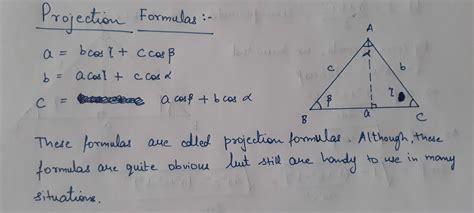 Projection Formulas:-
a = b cos γ + c cos β
b = a cos γ + c cos α
c = a cos β + b cos α
A
α
c
b
β
γ
B
a
C
These formulas are called projection formulas. Although, these
formulas are quite obvious but still are handy to use in many
situations.